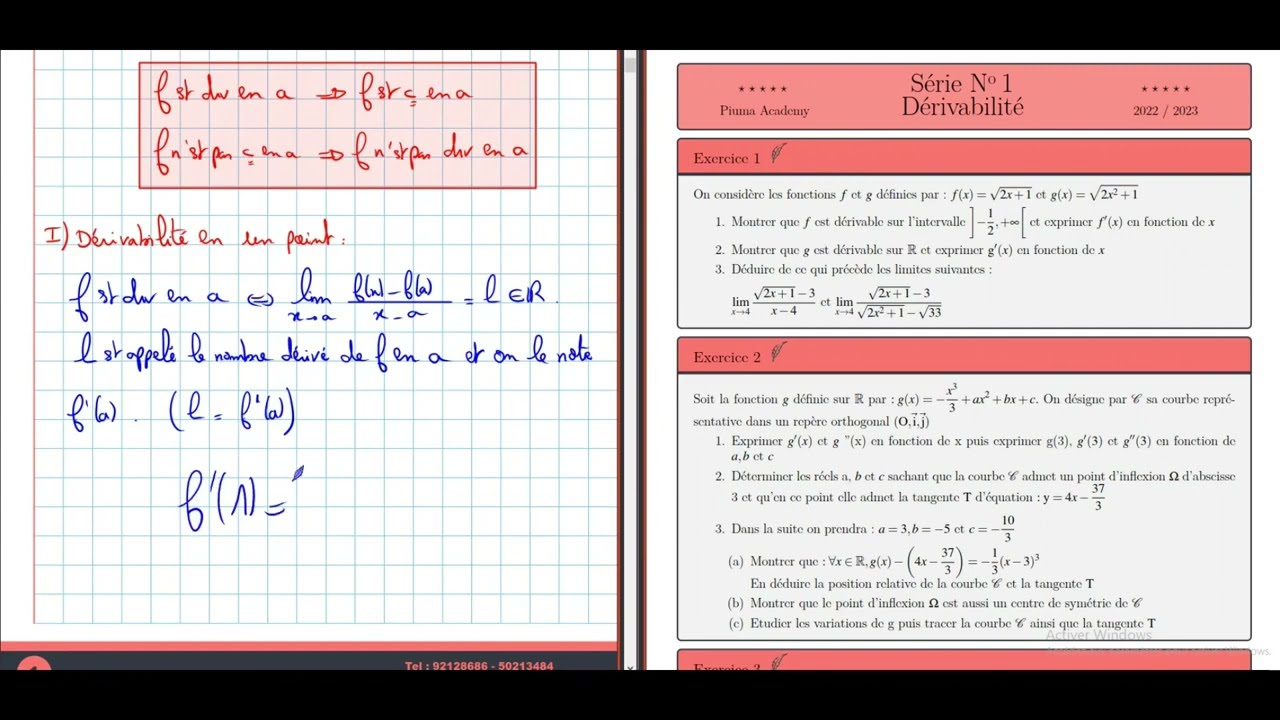 f est der en a ⇒ f est c en a
f n'est pas c en a ⇒ f n'est pas der en a
I) Dérivabilité en un point :
f est der en a ⇔ lim x→a f(x) − f(a) / x − a = l ∈ ℝ.
l est appelé le nombre dérivé de f en a et on le note
f'(a). (l = f'(a))
f'(1) =
Tel : 92128686 - 50213484
★★★★★ Série Nº 1 ★★★★★
Piuma Academy Dérivabilité 2022 / 2023
Exercice 1
On considère les fonctions f et g définies par : f(x) = √(2x+1) et g(x) = √(2x²+1)
1. Montrer que f est dérivable sur l'intervalle ]−1/2, +∞[ et exprimer f'(x) en fonction de x
2. Montrer que g est dérivable sur ℝ et exprimer g'(x) en fonction de x
3. Déduire de ce qui précède les limites suivantes :
lim x→4 (√(2x+1) − 3)/(x − 4) et lim x→4 (√(2x+1) − 3)/(√(2x²+1) − √33)
Exercice 2
Soit la fonction g définie sur ℝ par : g(x) = −x³/3 + ax² + bx + c. On désigne par 𝒞 sa courbe repré-
sentative dans un repère orthogonal (O, i⃗, j⃗)
1. Exprimer g'(x) et g "(x) en fonction de x puis exprimer g(3), g'(3) et g"(3) en fonction de
a,b et c
2. Déterminer les réels a, b et c sachant que la courbe 𝒞 admet un point d'inflexion Ω d'abscisse
3 et qu'en ce point elle admet la tangente T d'équation : y = 4x − 37/3
3. Dans la suite on prendra : a = 3, b = −5 et c = −10/3
(a) Montrer que : ∀x ∈ ℝ, g(x) − (4x − 37/3) = −1/3(x − 3)³
En déduire la position relative de la courbe 𝒞 et la tangente T
(b) Montrer que le point d'inflexion Ω est aussi un centre de symétrie de 𝒞
(c) Etudier les variations de g puis tracer la courbe 𝒞 ainsi que la tangente T
Activer Windows
Exercice 3